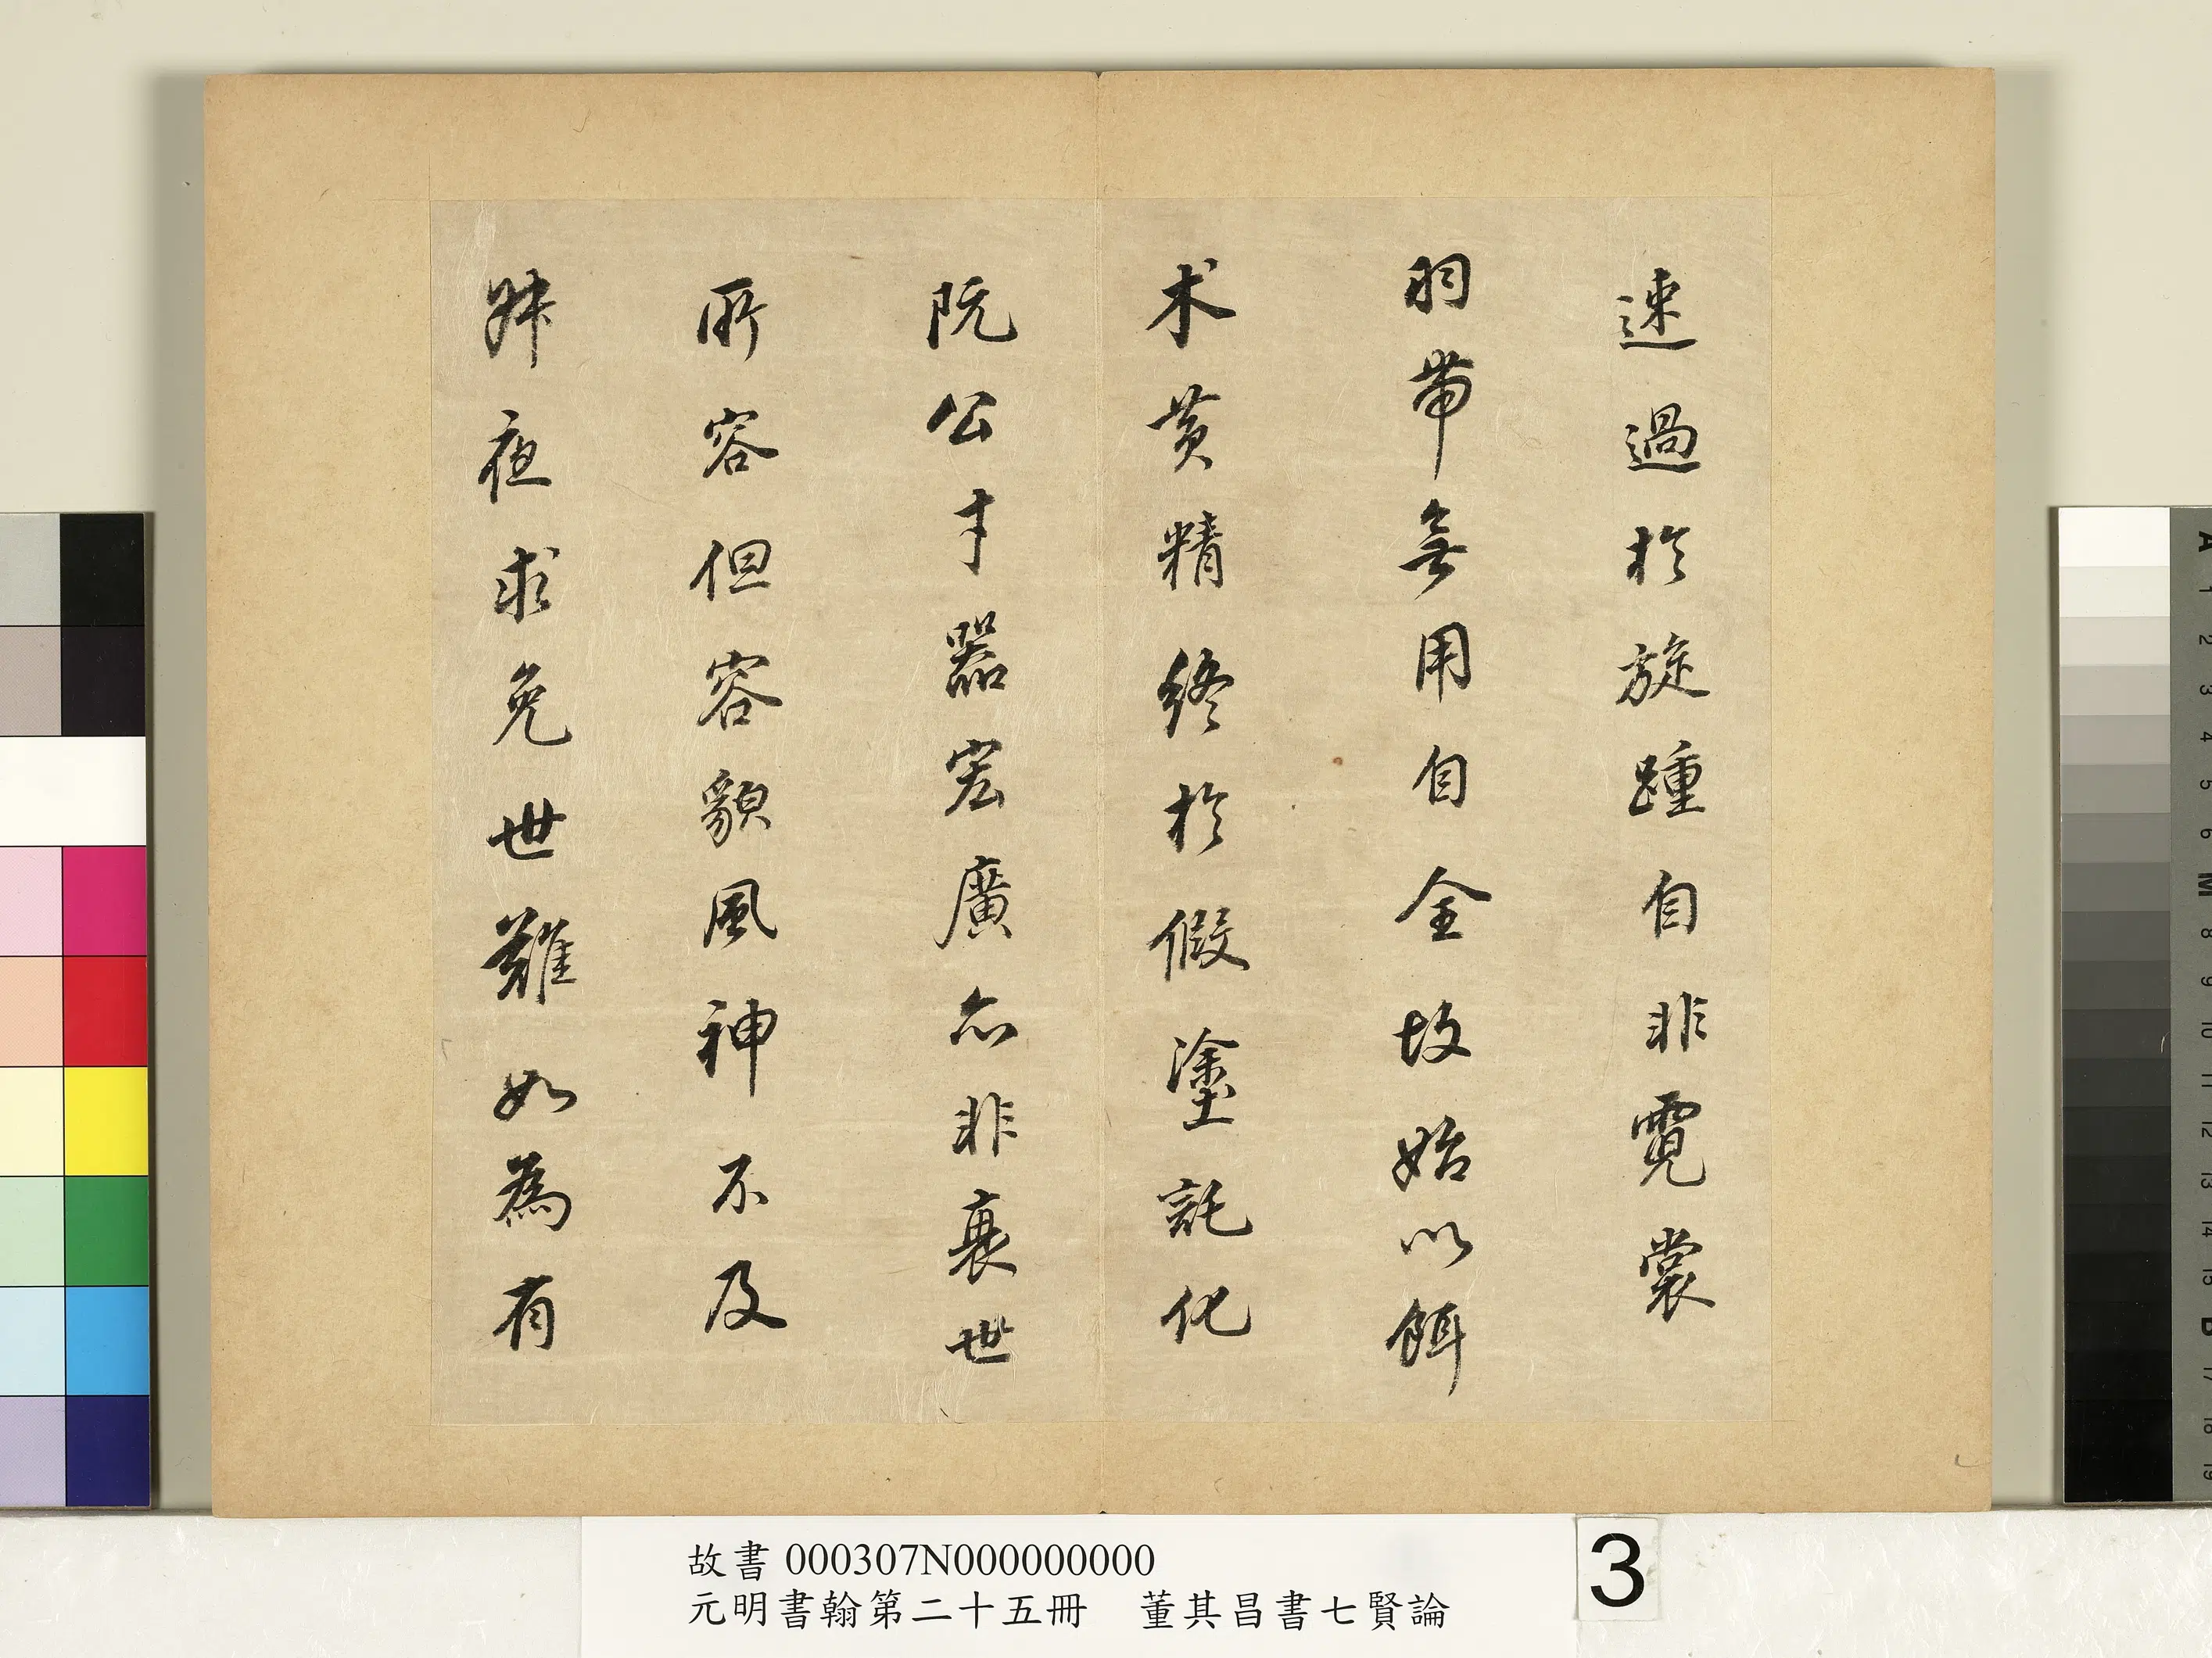 速過於旋踵自非霓裳
羽帶無用自全故始以餌
朮黄精終於假塗託化
阮公才器宏廣亦非衰世
所容但容貌風神不及
叔夜求免世難如為有
故書 000307N000000000
元明書翰第二十五冊 董其昌書七賢論
3
A 1 2 3 4 5 6 M 8 9 10 11 12 13 14 15 B 17 18 19